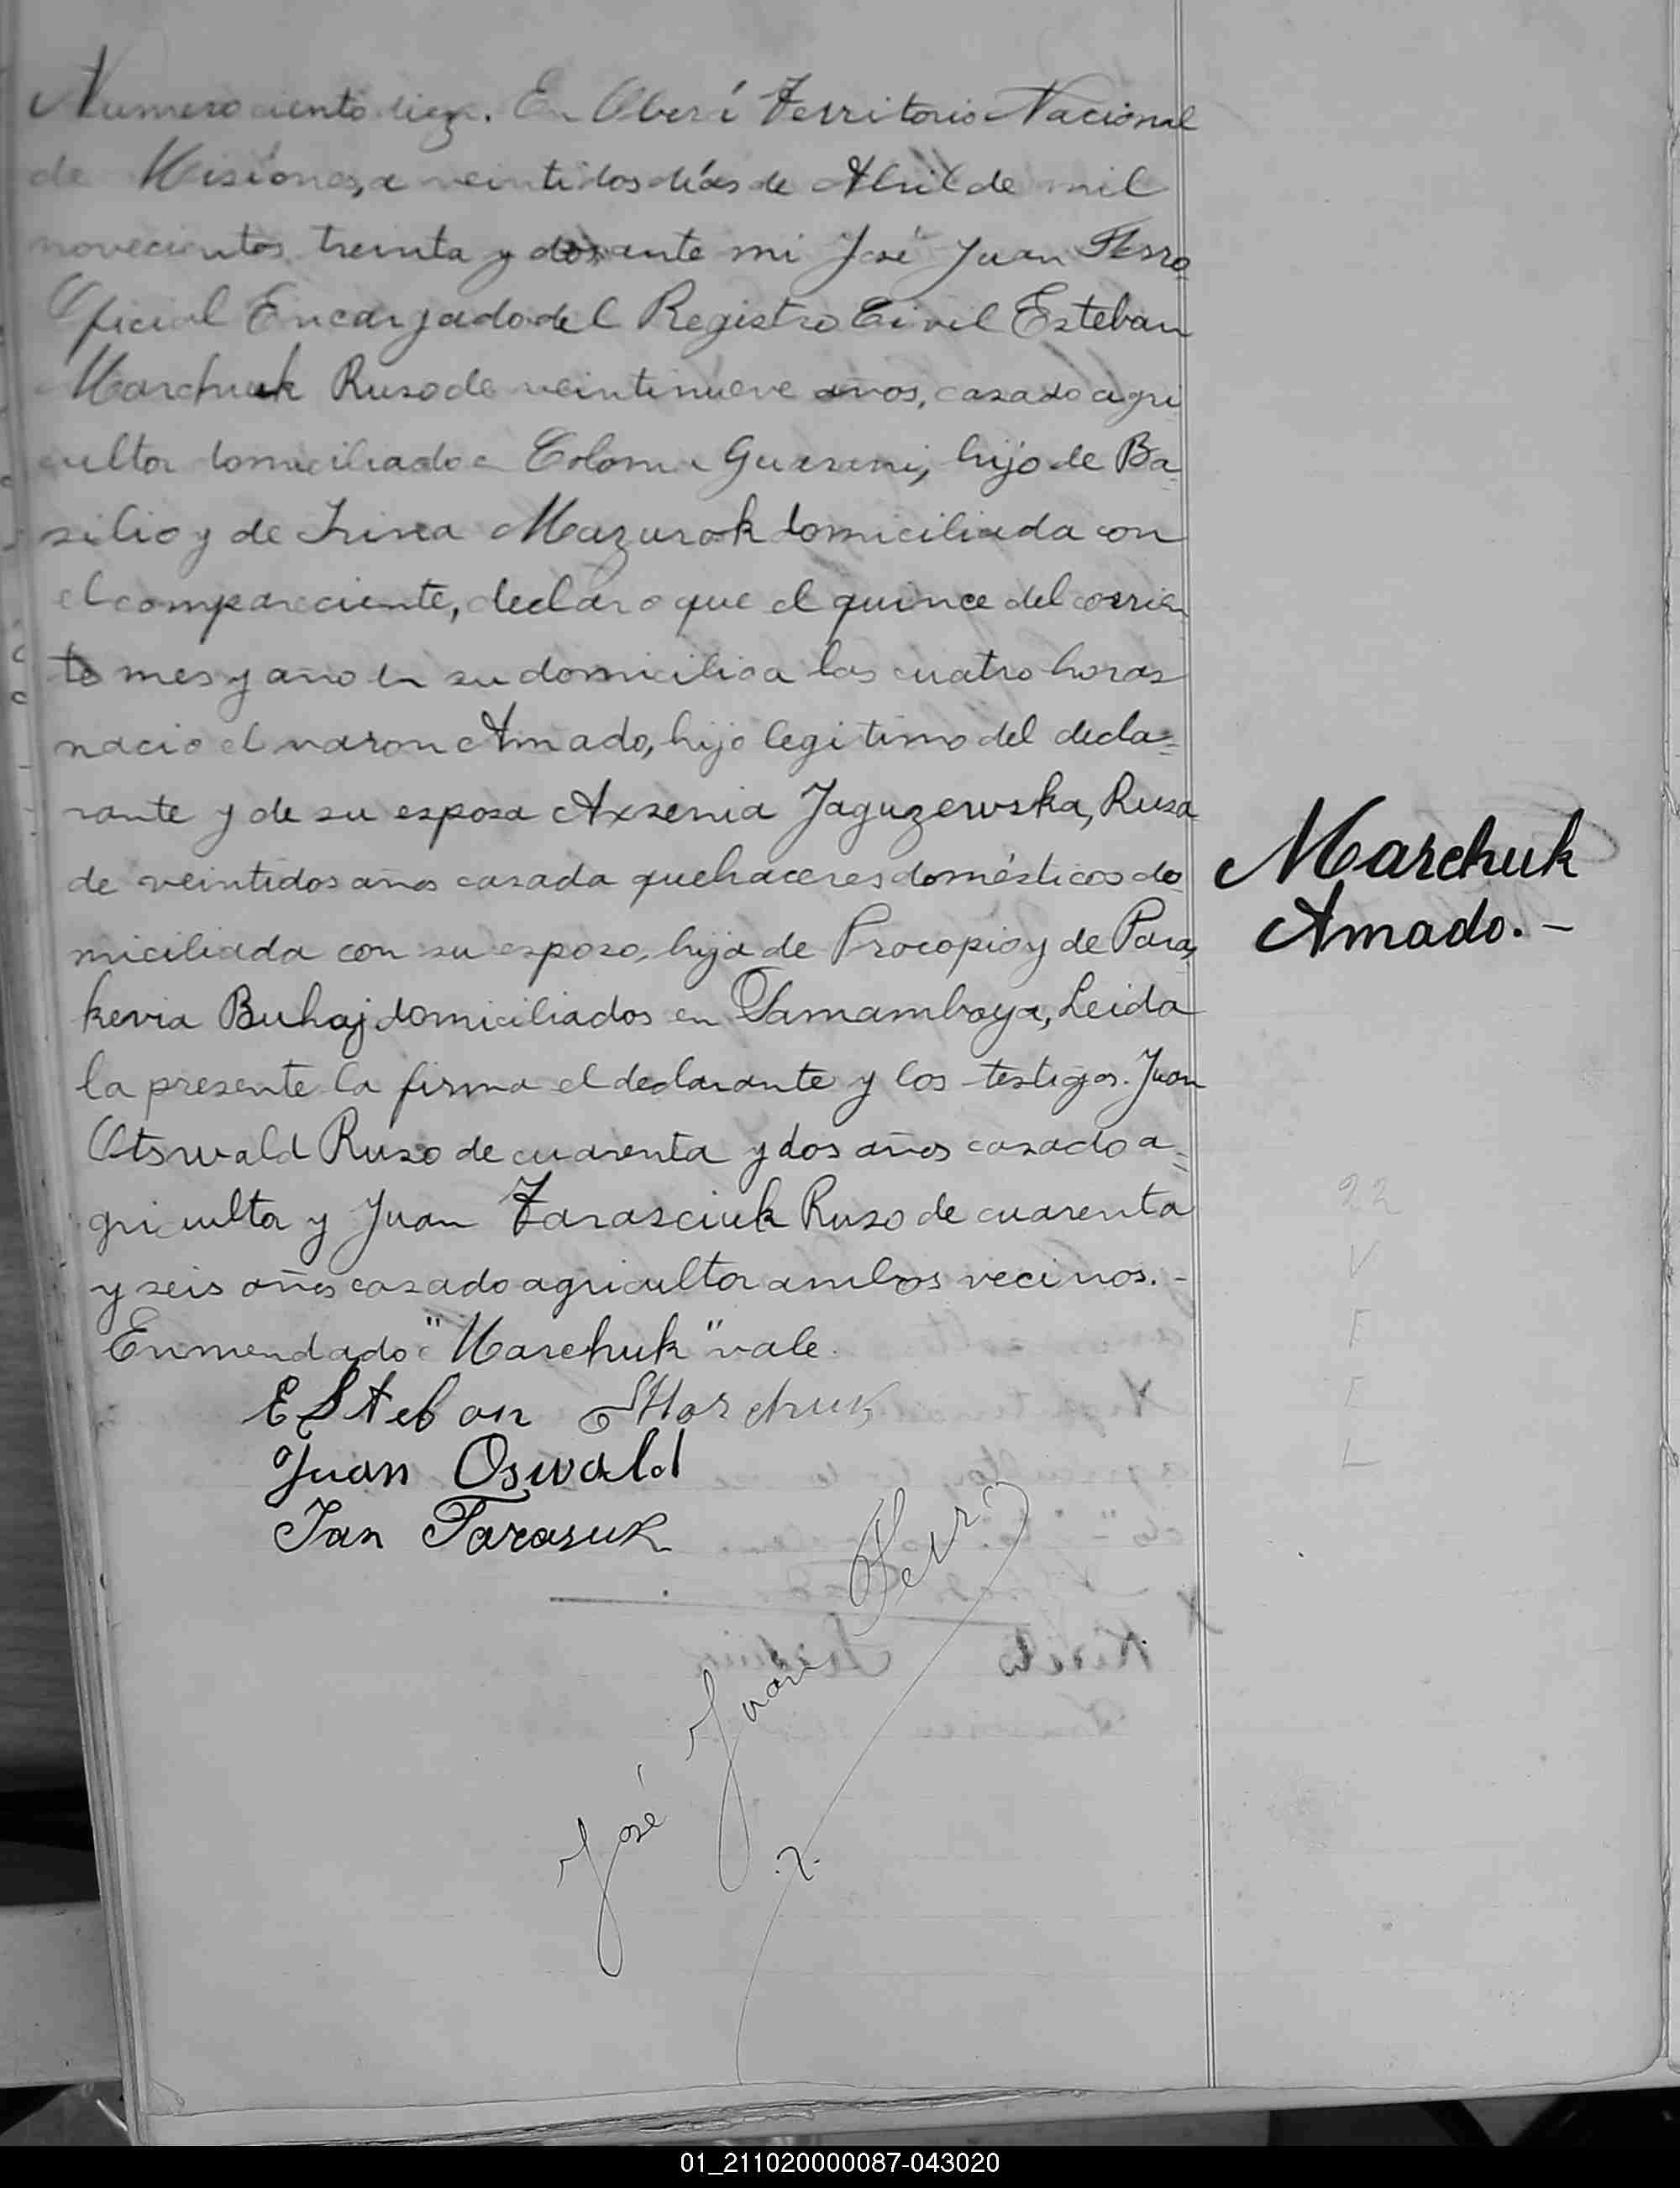 Numero ciento diez. En Oberá Territorio Nacional
de Misiones, a veintidos días de Abril de mil
novecientos treinta y dos ante mi José Juan Ferro
Oficial Encargado del Registro Civil Esteban
Marchuk Ruso de veintinueve años, casado agri
cultor domiciliado Colonia Guarani, hijo de Ba=
silio y de Irina Mazurok domiciliada con
el compareciente, declaro que el quince del corrien
te mes y año en su domicilio a las cuatro horas
nacio el varon Amado, hijo legitimo del decla=
rante y de su esposa Axsenia Jaguzewska, Rusa
de veintidos años casada quehaceres domésticos do
miciliada con su esposo, hija de Procopio y de Para,
kevia Buhaj domiciliados en Samambaya, Leida
la presente la firma el declarante y los testigos. Juan
Otswald Ruso de cuarenta y dos años casado a=
gricultor y Juan Tarasciuk Ruso de cuarenta
y seis años casado agricultor ambos vecinos. -
Enmendado "Marchuk" vale.
ESteban Marchuk
Juan Oswald
Jan Tarasuk
José Juan Ferro
Marchuk
Amado. -
22
V
F
E
L
01_211020000087-043020